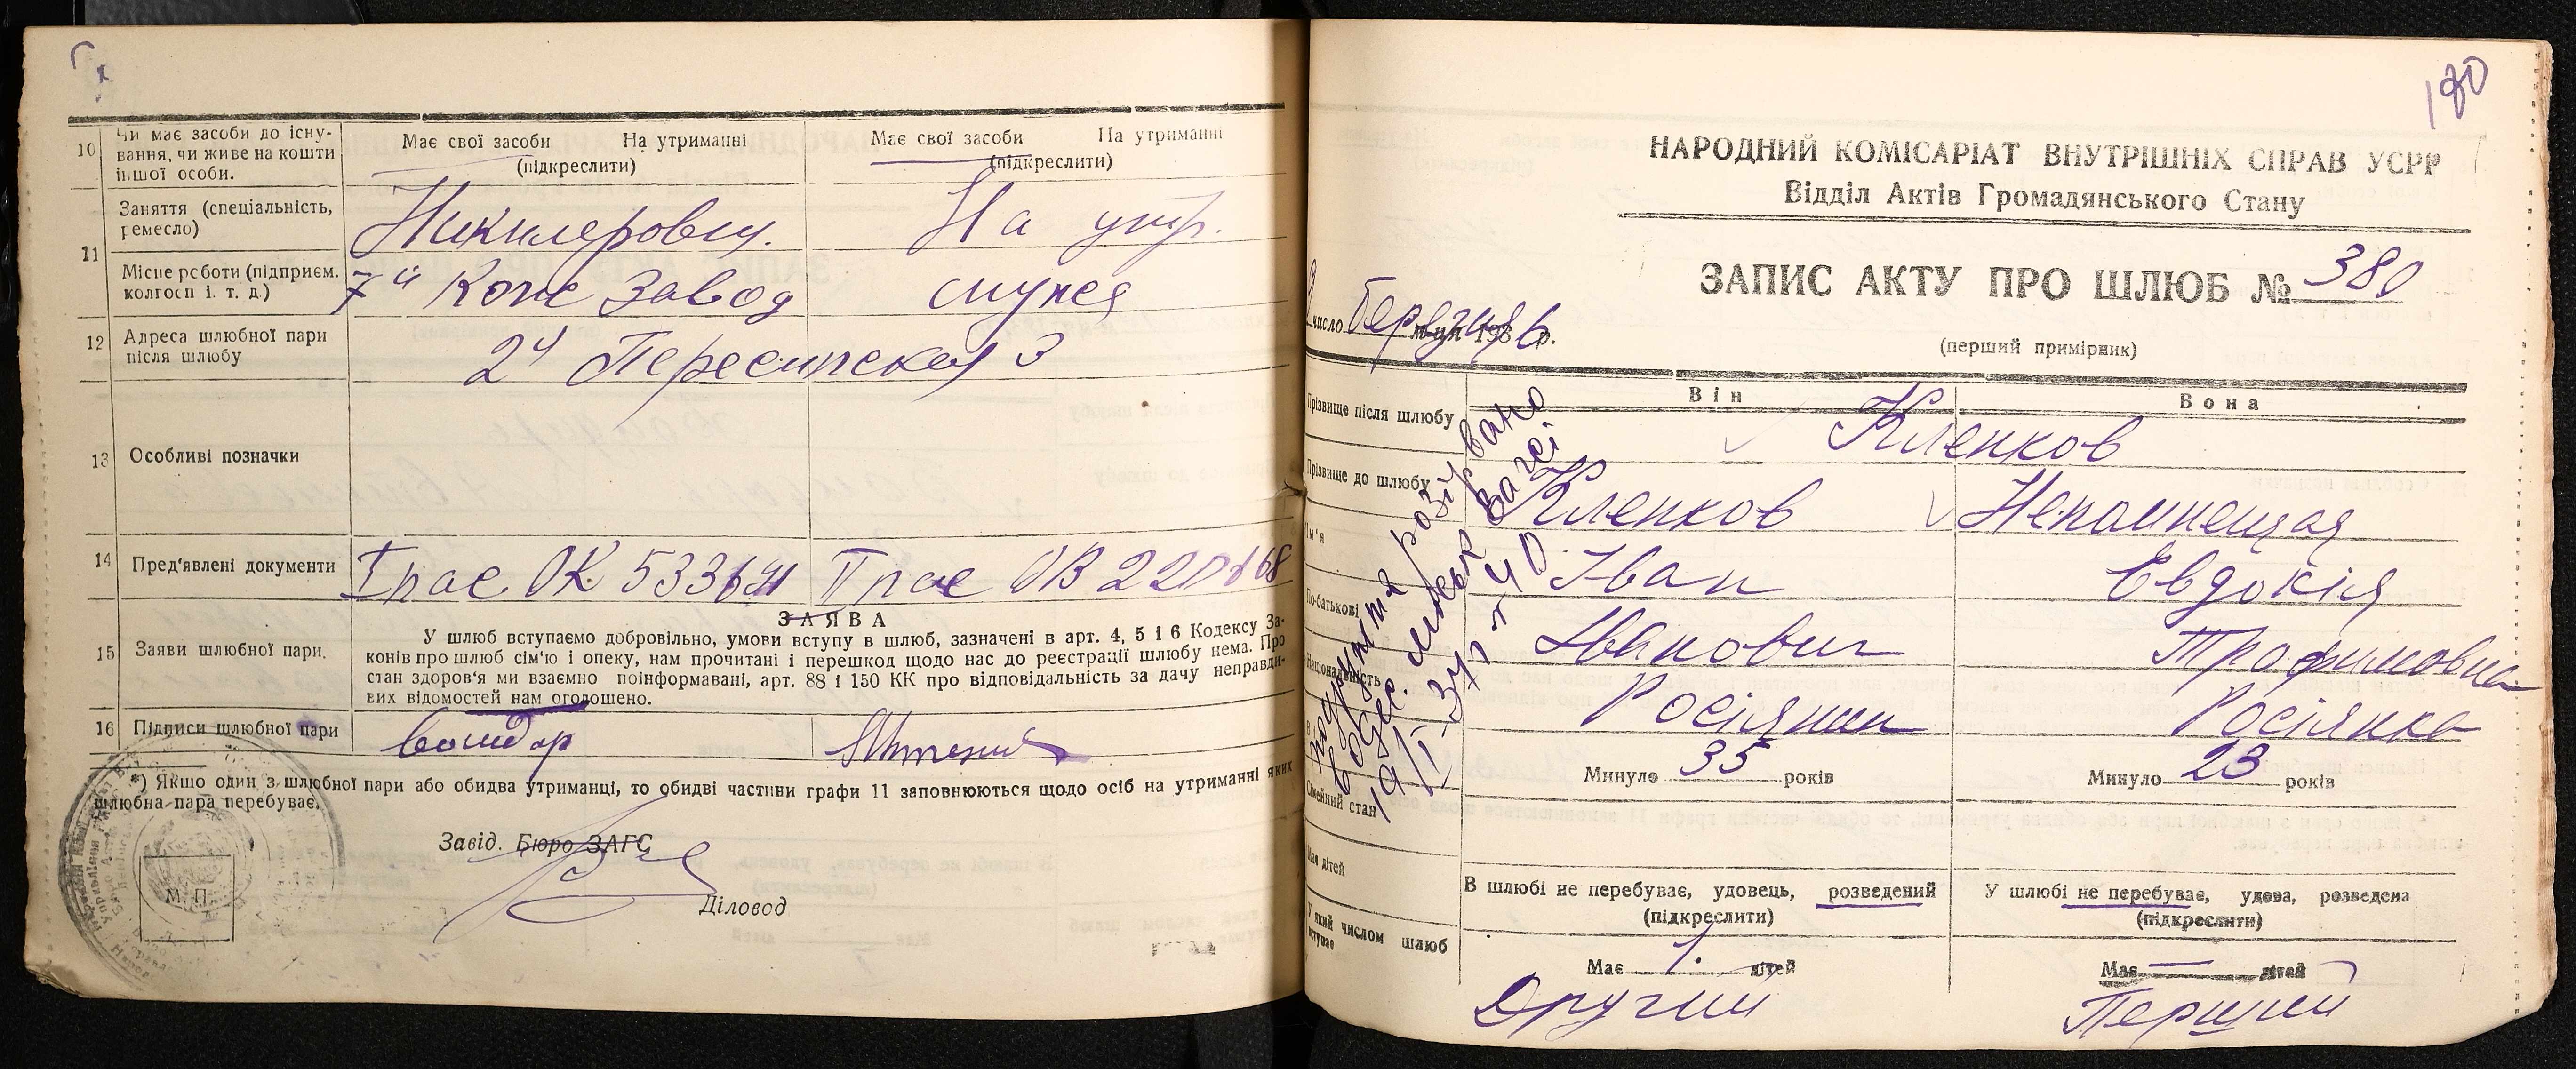 10
Чи має засоби до існу-
вання, чи живе на кошти
іншої особи.
Має свої засоби На утриманні
(підкреслити)
Має свої засоби На утриманні
(підкреслити)
11
Заняття (спеціальність,
ремесло)
На утр.
Місце роботи (підприєм.
колгосп і. т. д.)
7й Кож завод
12
Адреса шлюбної пари
після шлюбу
2я Пересипская 3
13
Особливі позначки
14
Пред'явлені документи
I пас ОК
II пас ОВ
ЗАЯВА
15
Заяви шлюбної пари.
У шлюб вступаємо добровільно, умови вступу в шлюб, зазначені в арт. 4, 5 і 6 Кодексу За-
конів про шлюб сім'ю і опеку, нам прочитані і перешкод щодо нас до реєстрації шлюбу нема. Про
стан здоров'я ми взаємно поінформавані, арт. 88 і 150 КК про відповідальність за дачу неправди-
вих відомостей нам оголошено.
16
Підписи шлюбної пари
*) Якщо один з шлюбної пари або обидва утриманці, то обидві частини графи 11 заповнюються щодо осіб на утриманні яких
шлюбна пара перебуває.
Завід. Бюро ЗАГС
М. П.
Діловод
180
НАРОДНИЙ КОМІСАРІАТ ВНУТРІШНІХ СПРАВ УСРР
Відділ Актів Громадянського Стану
ЗАПИС АКТУ ПРО ШЛЮБ № 380
число березня м-ця 1936 р.
(перший примірник)
Він
Вона
Прізвище після шлюбу
Кленков
Прізвище до шлюбу
Кленков
Непомнещая
Ім'я
Іван
Евдокія
По-батькові
Іванович
Трофимовна
Національність
Росіянин
Росіянка
Минуло 35 років
Минуло 23 років
Сімейний стан
В шлюбі не перебуває, удовець, розведений
(підкреслити)
У шлюбі не перебуває, удова, розведена
(підкреслити)
Має дітей
Має 1 дітей
Має — дітей
У який числом шлюб
вступає
Другий
Перший
подружжя розірвано
в Одес. міськ Загсі